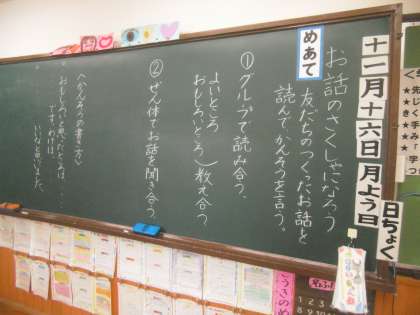 十一月十六日月よう日
日ちょく
お話のさくしゃになろう
めあて
友だちのつくったお話を
読んで、かんそうを言う。
①グループで読み合う。
よいところ
おもしろいところ
枚え合う
②ぜん体でお話を聞き合う。
〈かんそうの書き方〉
おもしろいと思ったところは……
です。わけは、
いいなと思いました。